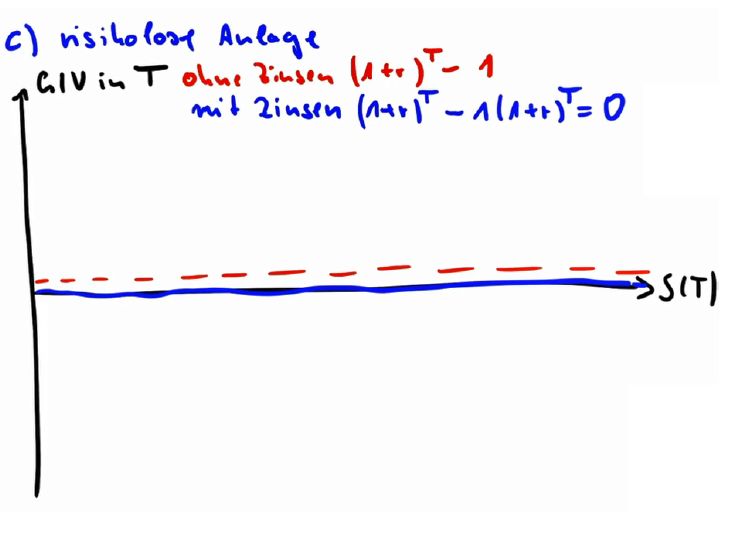 c) risikolose Anlage
G/V in T ohne Zinsen (1+r)^T - 1
mit Zinsen (1+r)^T - 1(1+r)^T = 0
S(T)